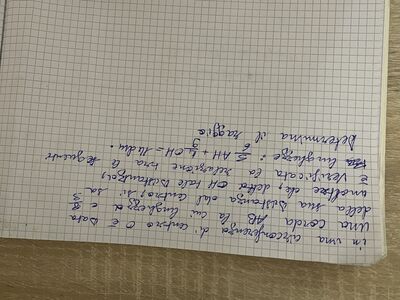 in una circonferenza di centro O è data
una corda AB la cui lunghezza è 8/3
della sua distanza dal centro; si sa
inoltre che, detta OH tale distanza,
è verificata la relazione tra le seguenti
lunghezze: 5/6 AH + 4/9 OH = 14 dm.
Determina il raggio